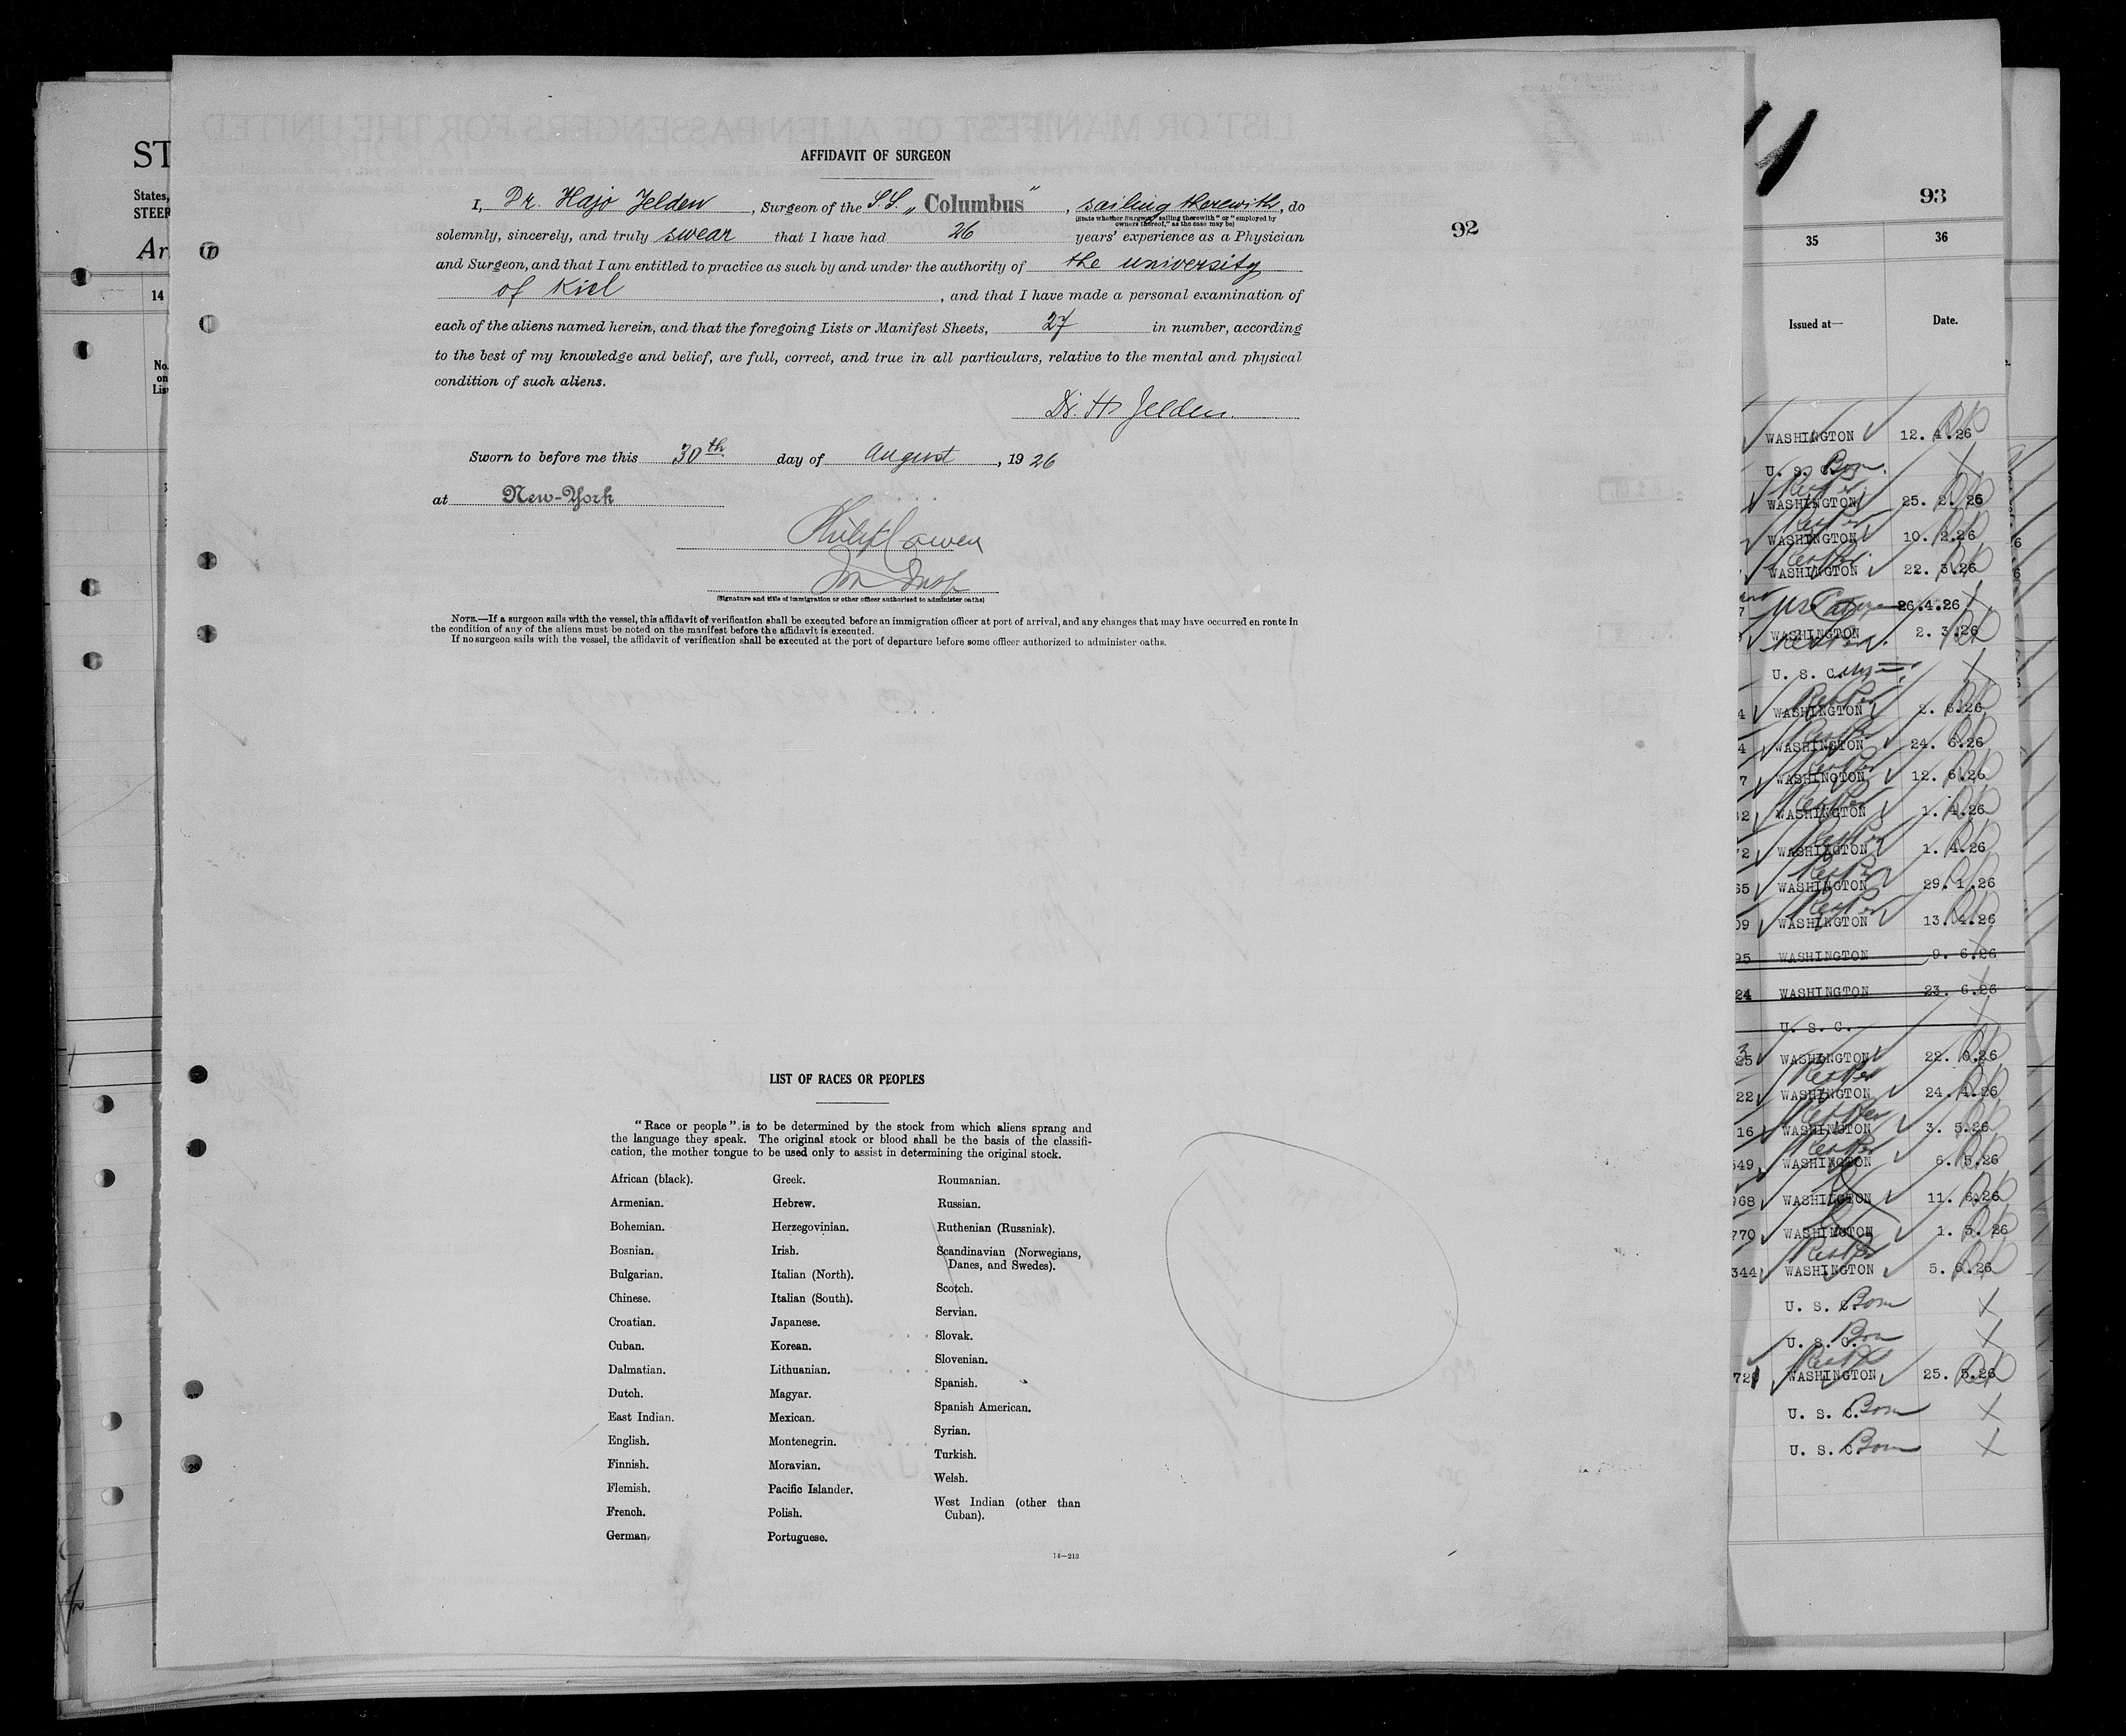 AFFIDAVIT OF SURGEON
I, Dr. Hajo Jelden, Surgeon of the S.S. „Columbus", sailing therewith, do
(State whether Surgeon "sailing therewith" or "employed by
owners thereof," as the case may be)
solemnly, sincerely, and truly swear that I have had 26 years' experience as a Physician
and Surgeon, and that I am entitled to practice as such by and under the authority of the university
of Kiel, and that I have made a personal examination of
each of the aliens named herein, and that the foregoing Lists or Manifest Sheets, 27 in number, according
to the best of my knowledge and belief, are full, correct, and true in all particulars, relative to the mental and physical
condition of such aliens.
Dr. H. Jelden.
Sworn to before me this 30th day of August, 1926
at New-York
Philip Cowen
Im Insp
(Signature and title of immigration or other officer authorized to administer oaths)
NOTE.—If a surgeon sails with the vessel, this affidavit of verification shall be executed before an immigration officer at port of arrival, and any changes that may have occurred en route in
the condition of any of the aliens must be noted on the manifest before the affidavit is executed.
If no surgeon sails with the vessel, the affidavit of verification shall be executed at the port of departure before some officer authorized to administer oaths.
92
LIST OF RACES OR PEOPLES
"Race or people" is to be determined by the stock from which aliens sprang and
the language they speak. The original stock or blood shall be the basis of the classifi-
cation, the mother tongue to be used only to assist in determining the original stock.
African (black).
Armenian.
Bohemian.
Bosnian.
Bulgarian.
Chinese.
Croatian.
Cuban.
Dalmatian.
Dutch.
East Indian.
English.
Finnish.
Flemish.
French.
German.
Greek.
Hebrew.
Herzegovinian.
Irish.
Italian (North).
Italian (South).
Japanese.
Korean.
Lithuanian.
Magyar.
Mexican.
Montenegrin.
Moravian.
Pacific Islander.
Polish.
Portuguese.
Roumanian.
Russian.
Ruthenian (Russniak).
Scandinavian (Norwegians,
Danes, and Swedes).
Scotch.
Servian.
Slovak.
Slovenian.
Spanish.
Spanish American.
Syrian.
Turkish.
Welsh.
West Indian (other than
Cuban).
14—213
ST
States,
STEER
Ar
14
No.
on
Lis
93
35 36
Issued at— Date.
WASHINGTON 12. 4.26
U. S. C. Born
WASHINGTON 25. 2. 26
WASHINGTON 10. 2.26
WASHINGTON 22. 3.26
26.4.26
WASHINGTON 2. 3.26
U. S. C.
WASHINGTON 2. 6.26
WASHINGTON 24. 6.26
WASHINGTON 12. 6.26
WASHINGTON 1. 4.26
WASHINGTON 1. 4.26
WASHINGTON 29. 1.26
WASHINGTON 13. 4.26
95 WASHINGTON 9. 6.26
24 WASHINGTON 23. 6.26
U. S. C.
25 WASHINGTON 22. 6.26
22 WASHINGTON 24. 4.26
16 WASHINGTON 3. 5.26
549 WASHINGTON 6. 5.26
968 WASHINGTON 11. 6.26
770 WASHINGTON 1. 3. 26
344 WASHINGTON 5. 6.26
U. S. C. Born
U. S. C. Born
WASHINGTON 25. 5.26
U. S. C. Born
U. S. C. Born